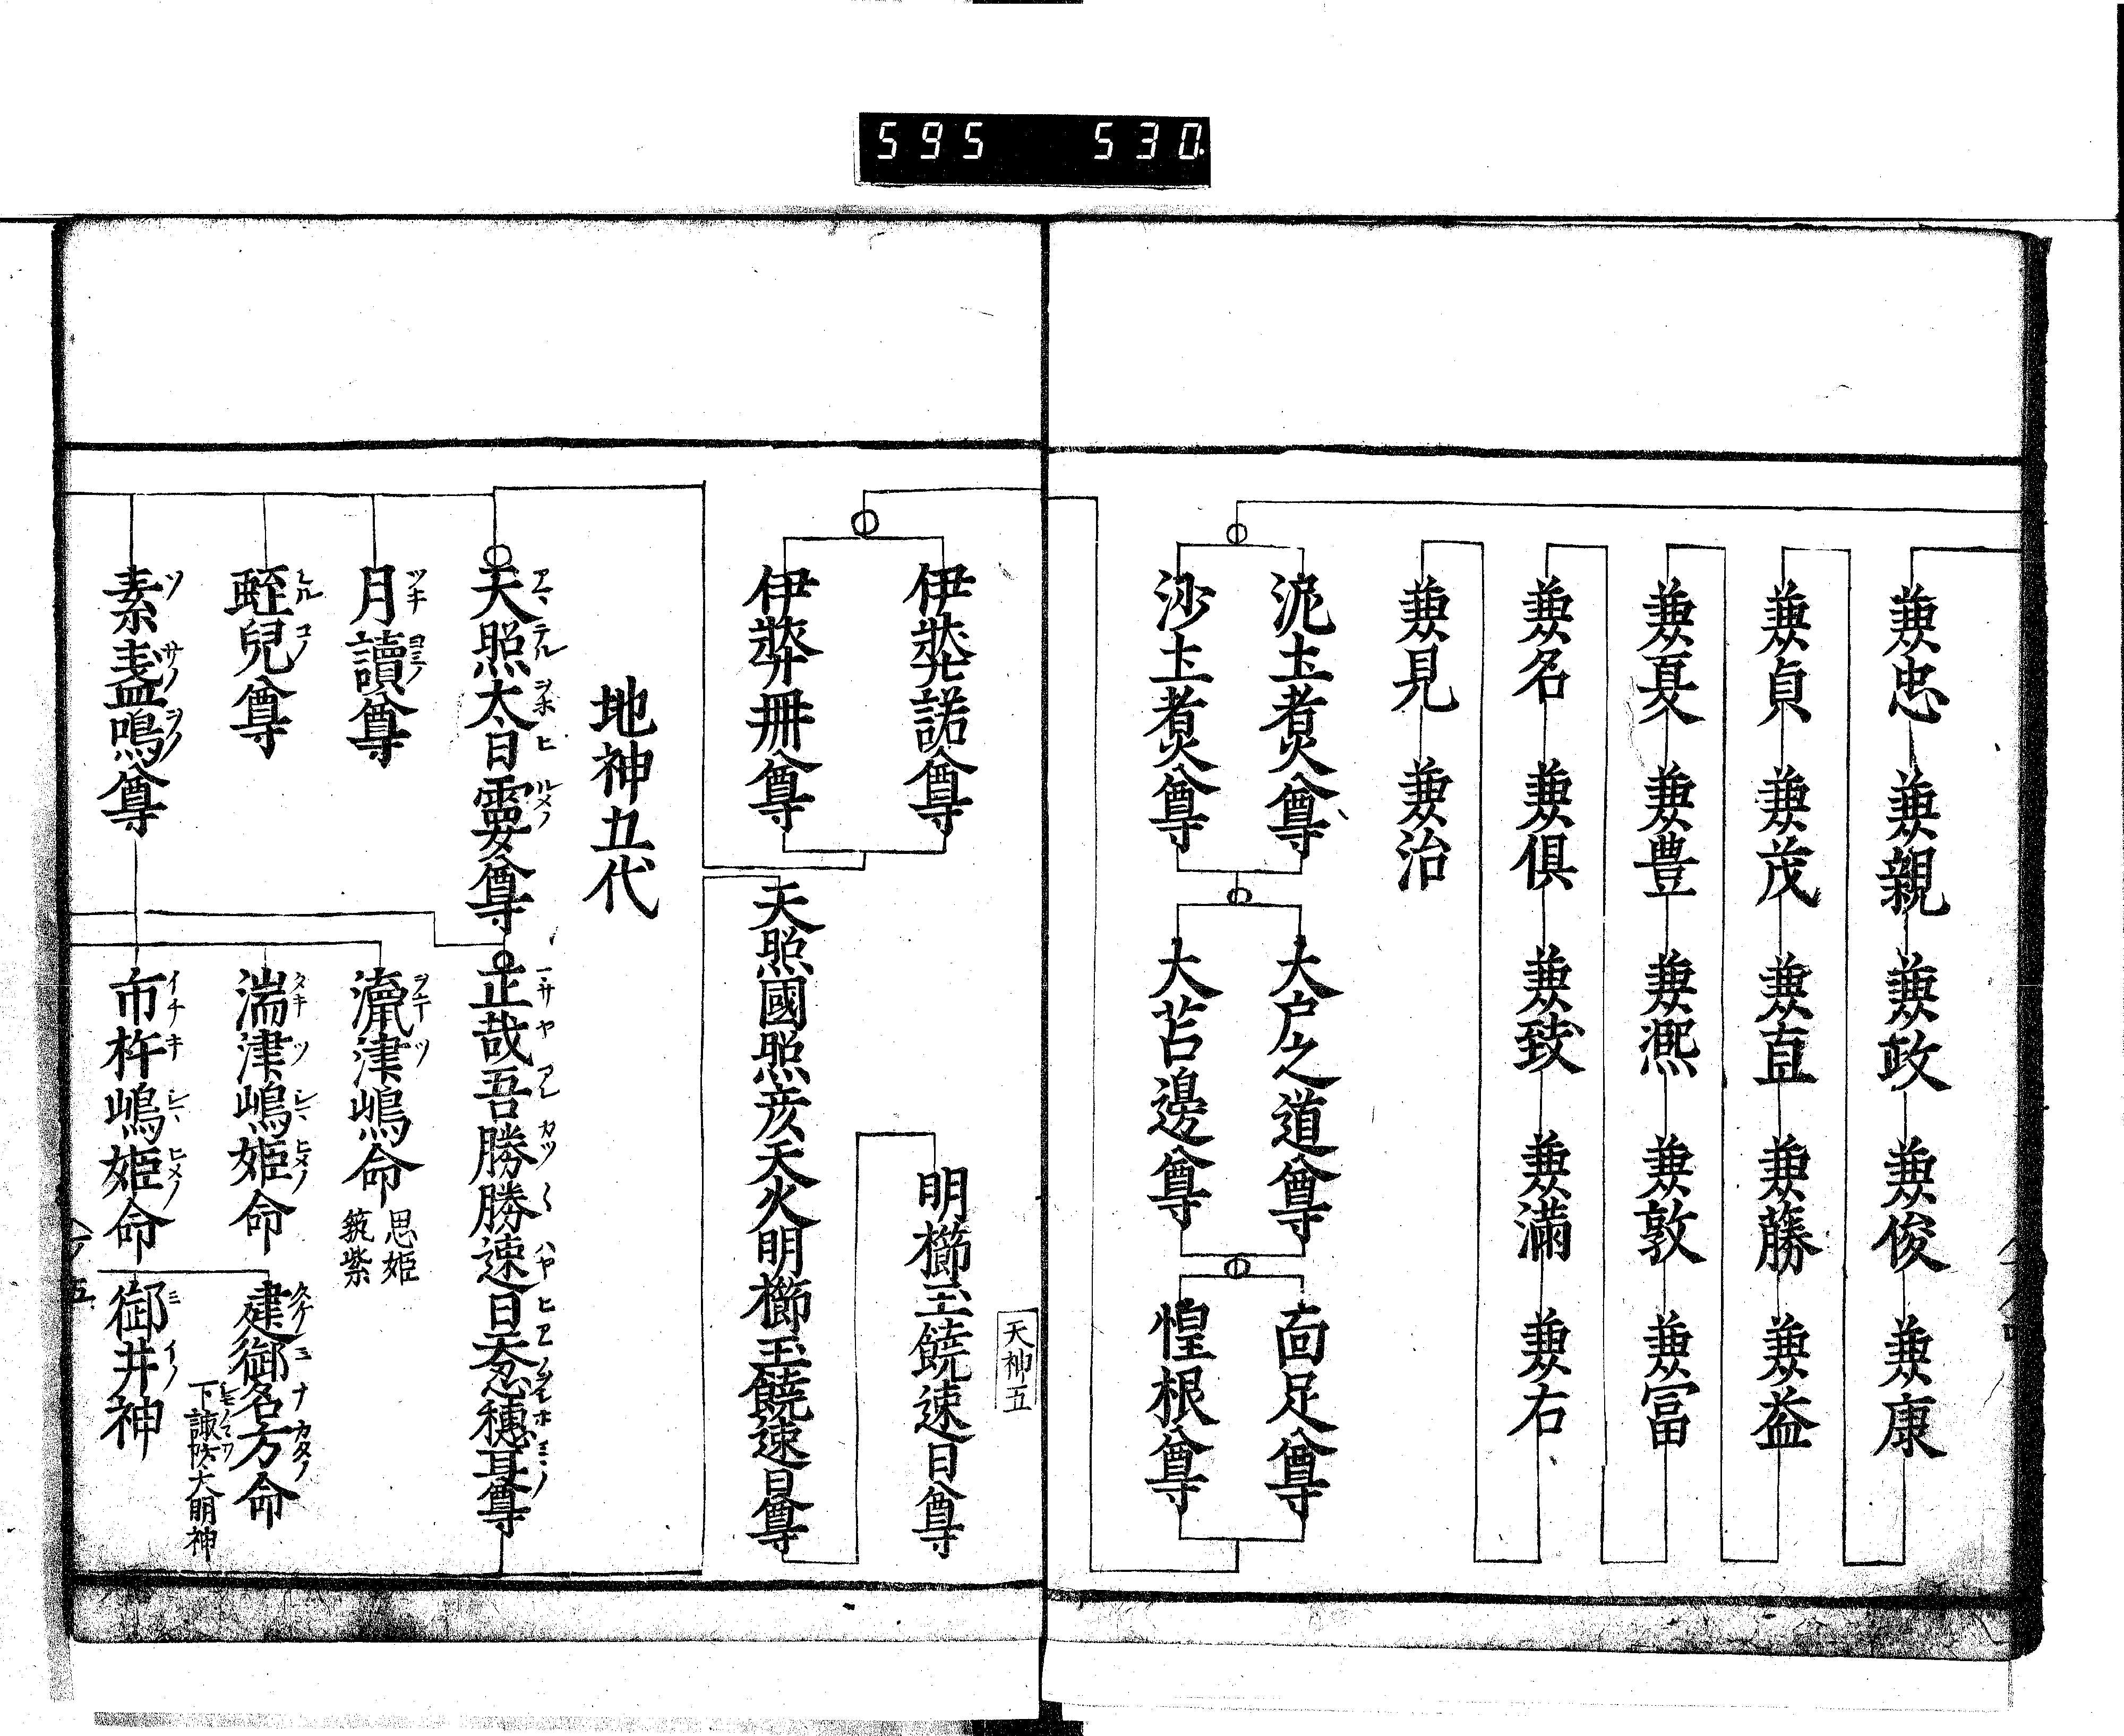 595 530
兼忠 兼親 兼政 兼俊 兼康
兼貞 兼茂 兼直 兼藤 兼益
兼夏 兼豊 兼凞 兼敦 兼冨
兼名 兼俱 兼致 兼滿 兼右
兼見 兼治
泥土煑尊 大戸之道尊 面足尊
沙土煑尊 大苫邊尊 惶根尊
天神五
伊弉諾尊 明櫛玉饒速日尊
伊弉冊尊 天照國照彦天火明櫛玉饒速日尊
地神五代
天照太日孁尊 正哉吾勝勝速日天忍穗耳尊
月讀尊 瀛津嶋命 思姫 筑紫
蛭兒尊 湍津嶋姫命 建御名方命 下諏訪大明神
素盞嗚尊 市杵嶋姫命 御井神
五